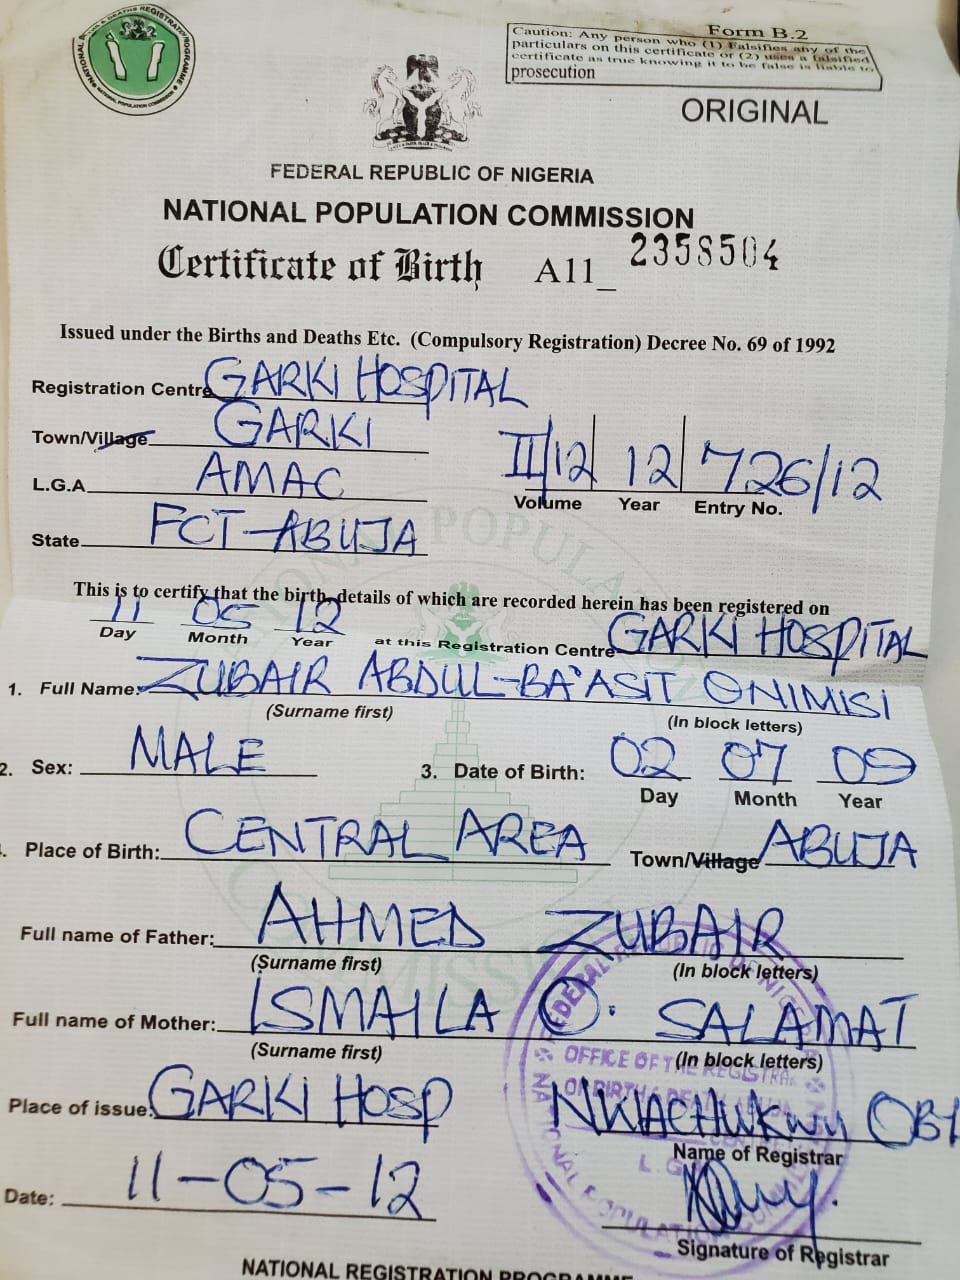 Form B.2
Caution: Any person who (1) Falsifies any of the
particulars on this certificate or (2) uses a falsified
certificate as true knowing it to be false is liable to
prosecution
ORIGINAL
FEDERAL REPUBLIC OF NIGERIA
NATIONAL POPULATION COMMISSION
Certificate of Birth A11_ 2358504
Issued under the Births and Deaths Etc. (Compulsory Registration) Decree No. 69 of 1992
Registration Centre GARKI HOSPITAL
Town/Village GARKI
L.G.A AMAC
II/12 12 726/12
Volume Year Entry No.
State FCT-ABUJA
This is to certify that the birth, details of which are recorded herein has been registered on
11 05 12
Day Month Year at this Registration Centre GARKI HOSPITAL
1. Full Name: ZUBAIR ABDUL-BA'ASIT ONIMISI
(Surname first) (In block letters)
2. Sex: MALE 3. Date of Birth: 02 07 09
Day Month Year
. Place of Birth: CENTRAL AREA Town/Village ABUJA
Full name of Father: AHMED ZUBAIR
(Surname first) (In block letters)
Full name of Mother: ISMAILA O. SALAMAT
(Surname first) (In block letters)
Place of issue: GARKI HOSP NWACHUKWU OBI
Name of Registrar
Date: 11-05-12
Signature of Registrar
NATIONAL REGISTRATION PROGRAMME